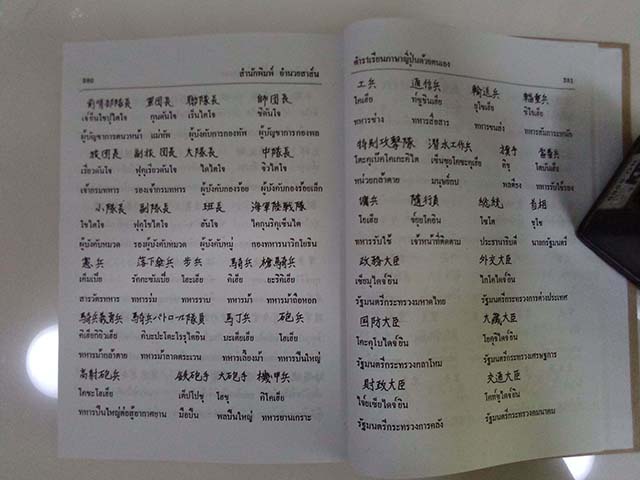 380 สำนักพิมพ์ อำนวยสาส์น
前哨部隊長 軍団長 聯隊長 師団長
ผู้บัญชาการตนวหน้า แม่ทัพ ผู้บังคับการกองทัพ ผู้บัญชาการกองพล
旅団長 副旅団長 大隊長 中隊長
เจ้ากรมทหาร รองเจ้ากรมทหาร ผู้บังคับกองร้อย ผู้บังคับกองร้อยเล็ก
小隊長 副隊長 班長 海軍陸戦隊
โชไตโจ ฟุกุไตโจ ฮันโจ ไคกุนริคุเซ็นไต
ผู้บังคับหมวด รองผู้บังคับหมวด ผู้บังคับหมู่ กองทหารนาวิกโยธิน
憲兵 落下傘兵 步兵 騎兵 槍騎兵
เค็มเปีย รัคกะซัมเปีย โฮะเฮีย คิเฮีย ยะริคิเฮีย
สารวัตรทหาร ทหารร่ม ทหารราบ ทหารม้า ทหารม้าถือหอก
騎兵義勇兵 騎兵パトロール隊員 馬丁兵 砲兵
ทหารม้ากล้าตาย ทหารม้าลาดตระเวน ทหารเลี้ยงม้า ทหารปืนใหญ่
高射砲兵 鉄砲手 大砲手 機甲兵
โคชะโฮเฮีย เต็ปโปชุ โฮชุ คิโคเฮีย
ทหารปืนใหญ่ต่อสู้อากาศยาน มือปืน พลปืนใหญ่ ทหารยานเกราะ
ตำราเรียนภาษาญี่ปุ่นด้วยตนเอง 381
工兵 通信兵 輸送兵 輜重兵
โคเฮีย ทซึชินเฮีย ยุโซเฮีย ชิโจเฮีย
ทหารช่าง ทหารสื่อสาร ทหารขนส่ง
特別攻撃隊 潜水工作兵 旗手
หน่วยกล้าตาย มนุษย์กบ ทหารรับใช้
傭兵 隨行員 総統 首相
โยเฮีย โซโต ชุโช
ทหารรับใช้ เจ้าหน้าที่ติดตาม ประธานาธิบดี นายกรัฐมนตรี
政務大臣 外交大臣
เซียมุไดจ์ยิน ไกโคไดจ์ยิน
รัฐมนตรีกระทรวงมหาดไทย รัฐมนตรีกระทรวงต่างประเทศ
国防大臣 大蔵大臣
โคะคุโบไดจ์ยิน
รัฐมนตรีกระทรวงกลาโหม รัฐมนตรีกระทรวงเศรษฐการ
財政大臣 交通大臣
ไซ้ยเซียไดจ์ยิน โคทซูไดจ์ยิน
รัฐมนตรีกระทรวงการคลัง รัฐมนตรีกระทรวงคมนาคม